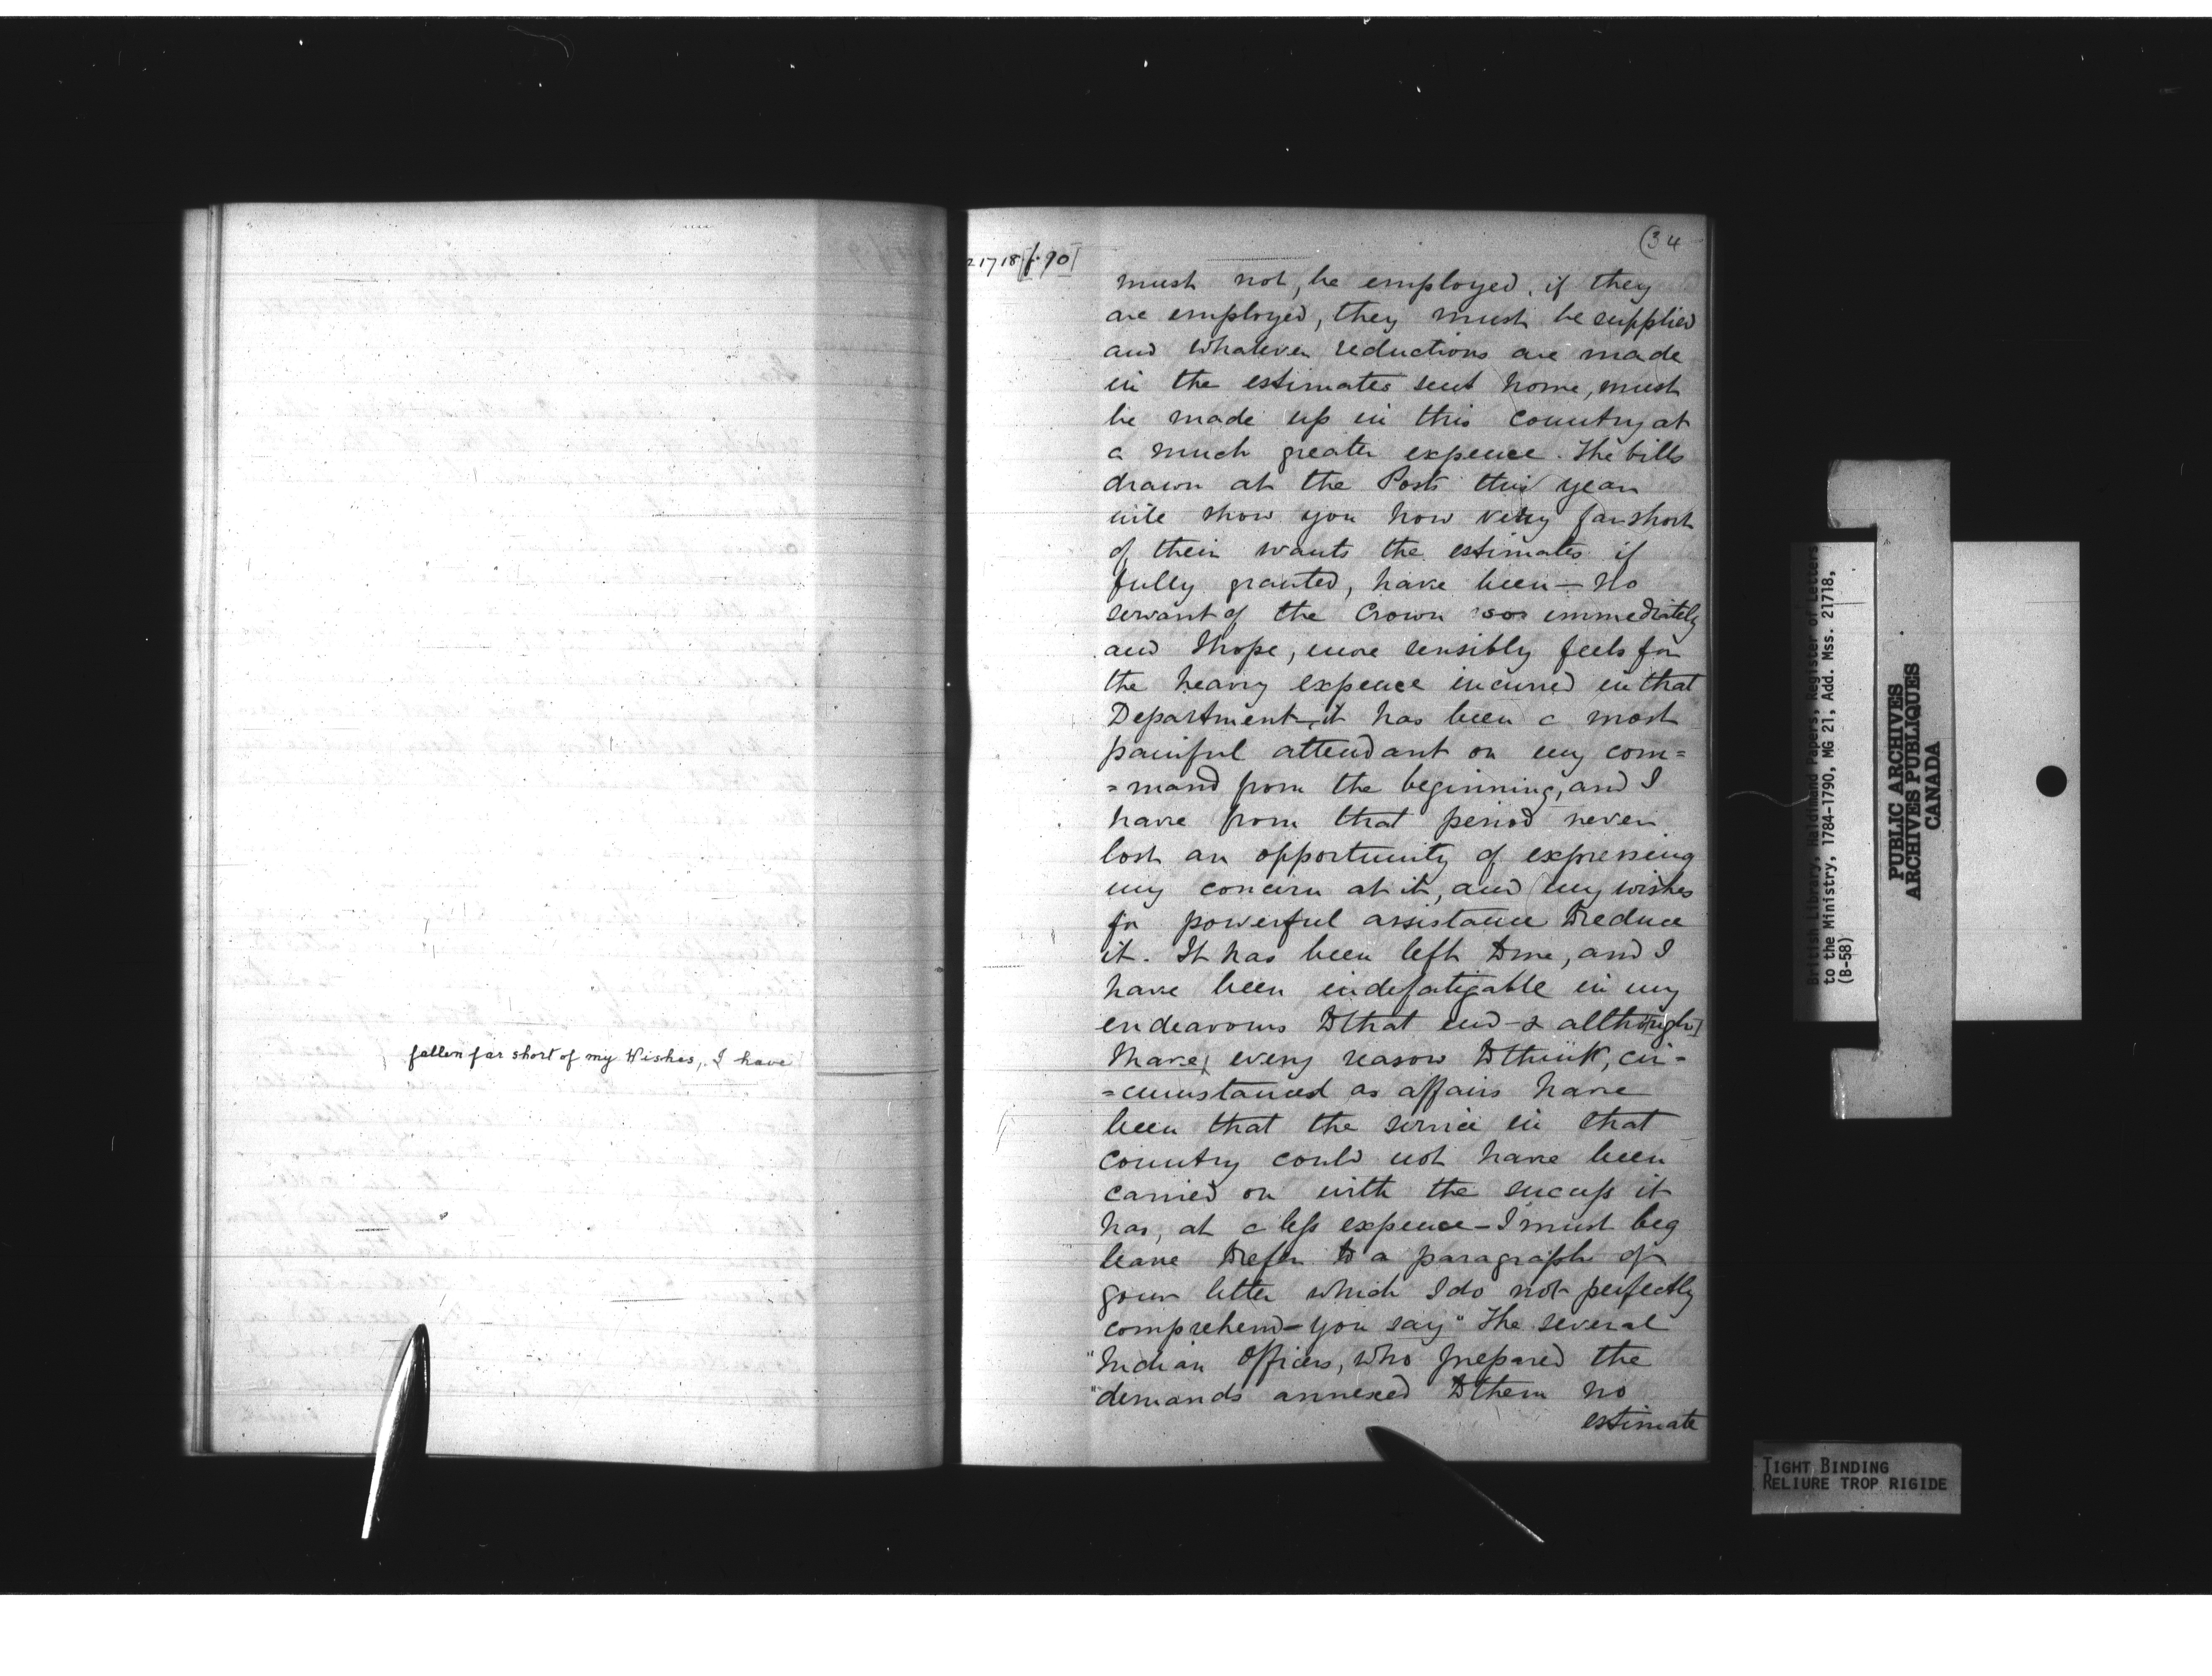 fallen far short of my Wishes, I have
(34
21718 [f.90]
must not, be employed, if they
are employed, they must be supplied
and whatever reductions are made
in the estimates sent home, must
be made up in this Country at
a much greater expence. The bills
drawn at the Posts this year
will show you how very far short
of their wants the estimates if
fully granted, have been — No
servant of the Crown so immediately
and I hope, more sensibly feels for
the heavy expence incurred in that
Department, it has been a most
painful attendant on my com=
=mand from the beginning, and I
have from that period never
lost an opportunity of expressing
my concern at it, and my wishes
for powerful assistance to reduce
it. It has been left to me, and I
have been indefatigable in my
endeavours to that end - & allthough]
I have, every reason to think, cir=
=cumstanced as affairs have
been that the service in that
Country could not have been
carried on with the success it
has, at a less expence — I must beg
leave to refer to a paragraph of
your letter which I do not perfectly
comprehend — you say "The several
"Indian Officers, who prepared the
"demands annexed to them no
estimate
British Library, Haldimand Papers, Register of Letters
to the Ministry, 1784-1790, MG 21, Add. Mss. 21718,
(B-58)
PUBLIC ARCHIVES
ARCHIVES PUBLIQUES
CANADA
TIGHT BINDING
RELIURE TROP RIGIDE